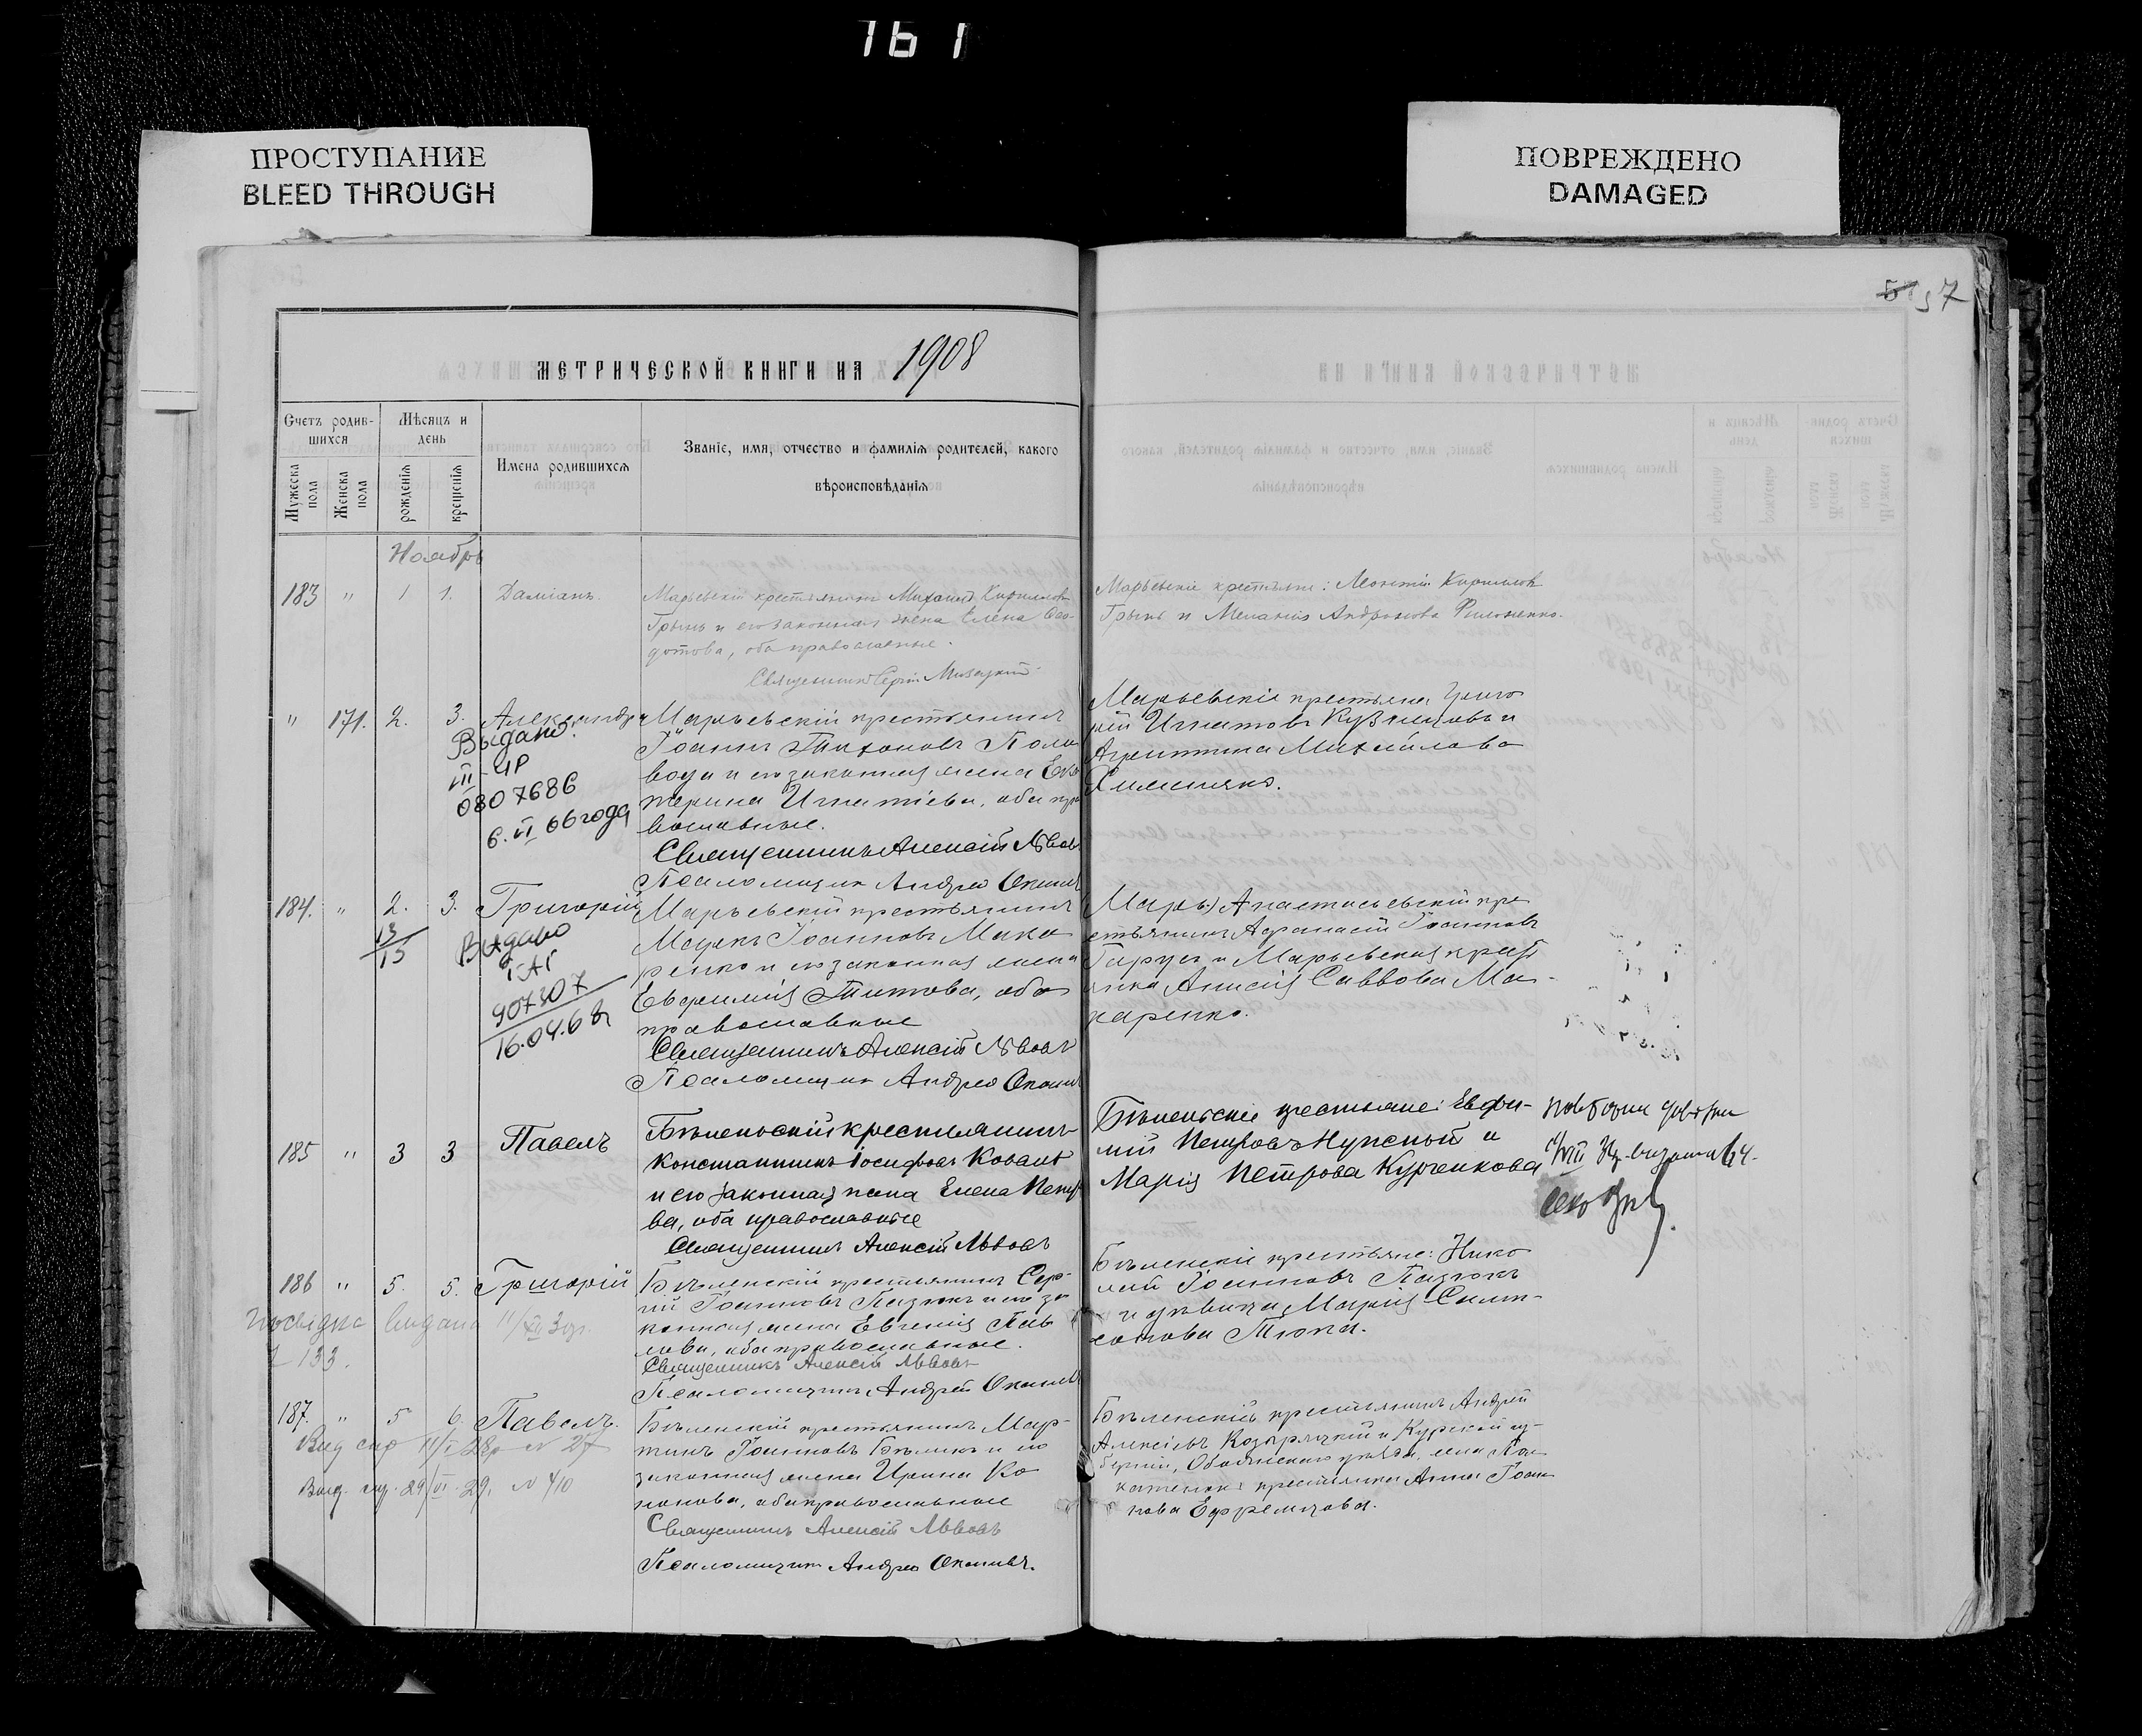 161
ПРОСТУПАНИЕ
BLEED THROUGH
ПОВРЕЖДЕНО
DAMAGED
57
МЕТРИЧЕСКОЙ КНИГИ НА 1908
Счетъ родив-
шихся
Мѣсяцъ и
день
Имена родившихся
Званіе, имя, отчество и фамилія родителей, какого
вѣроисповѣданія
Мужеска
пола
Женска
пола
рожденія
крещенія
Ноябрь
183 " 1 1. Даміанъ.
Марьевскій крестьянинъ Михаилъ Кирилловъ
Грынь и его законная жена Елена Ѳео-
дотова, оба православные.
Священникъ Сергій
Марьевскіе крестьяне: Леонтій Кирилловъ
Грынь и Меланія Андронова Филоненко.
" 171. 2. 3. Александра
Выдано.
III-ЧР
0807686
6. VI 66 года
Марьевскій крестьянинъ
Іоаннъ Тихоновъ Поло
вода и его законная жена Ека
терина Игнатіева, оба пра
вославные.
Священникъ Алексій Львовъ
Псаломщикъ Андрей
Марьевскіе крестьяне Григо
рій Игнатовъ Кузнецовъ и
Агриппина Михайлова
184. " 2. 3. Григорій
13
15
Выдано
ГАГ
907307
16.04.68г
Марьевскій крестьянинъ
Маркъ Іоанновъ Мака
ренко и его законная жена
Евфимія Титова, оба
православные
Священникъ Алексій Львовъ
Псаломщикъ Андрей
Марье) Анастасьевскій кре
стьянинъ Афанасій Іоанновъ
Гарусъ и Марьевская крест
янка Анисія Саввова Ма-
каренко.
185 " 3 3 Павелъ
Бѣленьскій крестьянинъ
Константинъ Іосифовъ Коваль
и его законная жена Елена Петро
ва, оба православные
Священникъ Алексій Львовъ
Бѣленьскіе крестьяне: Евфи-
мій Петровъ и
Марія Петрова Курченкова
186 " 5. 5. Григорій
Посвідка видана 11/XII 3
133.
Бѣленскій крестьянинъ Сер-
гій Іоанновъ Пазюкъ и его за
конная жена Евгенія Пав
лова, оба православные.
Священникъ Алексій Львовъ
Псаломщикъ Андрей
Бѣленскіе крестьяне: Нико
лай Іоанновъ Пазюкъ
и дѣвица Марія Симе-
онова Тюпа.
187. " 5 6. Павелъ.
28р N 27
29. N 410
Бѣленскій крестьянинъ Мар-
тинъ Іоанновъ Бѣликъ и его
законная жена Ирина Ко
нонова, оба православные
Священникъ Алексій Львовъ
Псаломщикъ Андрей
Бѣленскій крестьянинъ Андрей
Алексіевъ и Курской гу-
берніи, Обоянскаго уѣзда,
крестьянка Анна Іоан
нова Ефремцова.